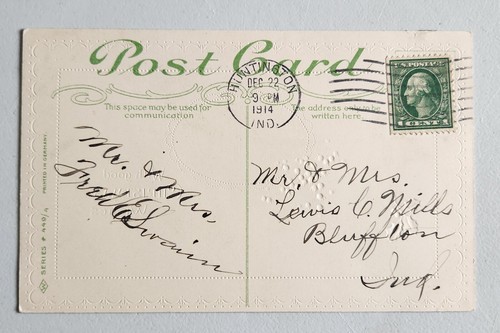 Post Card
This space may be used for
communication
The address only may be
written here.
HUNTINGTON
DEC 22
9 PM
1914
IND.
U.S. POSTAGE
1 CENT 1
Mr. & Mrs.
Fred E Swain
Mr. & Mrs.
Lewis C. Mills
Bluffton
Ind.
PRINTED IN GERMANY.
SERIES # 449/4